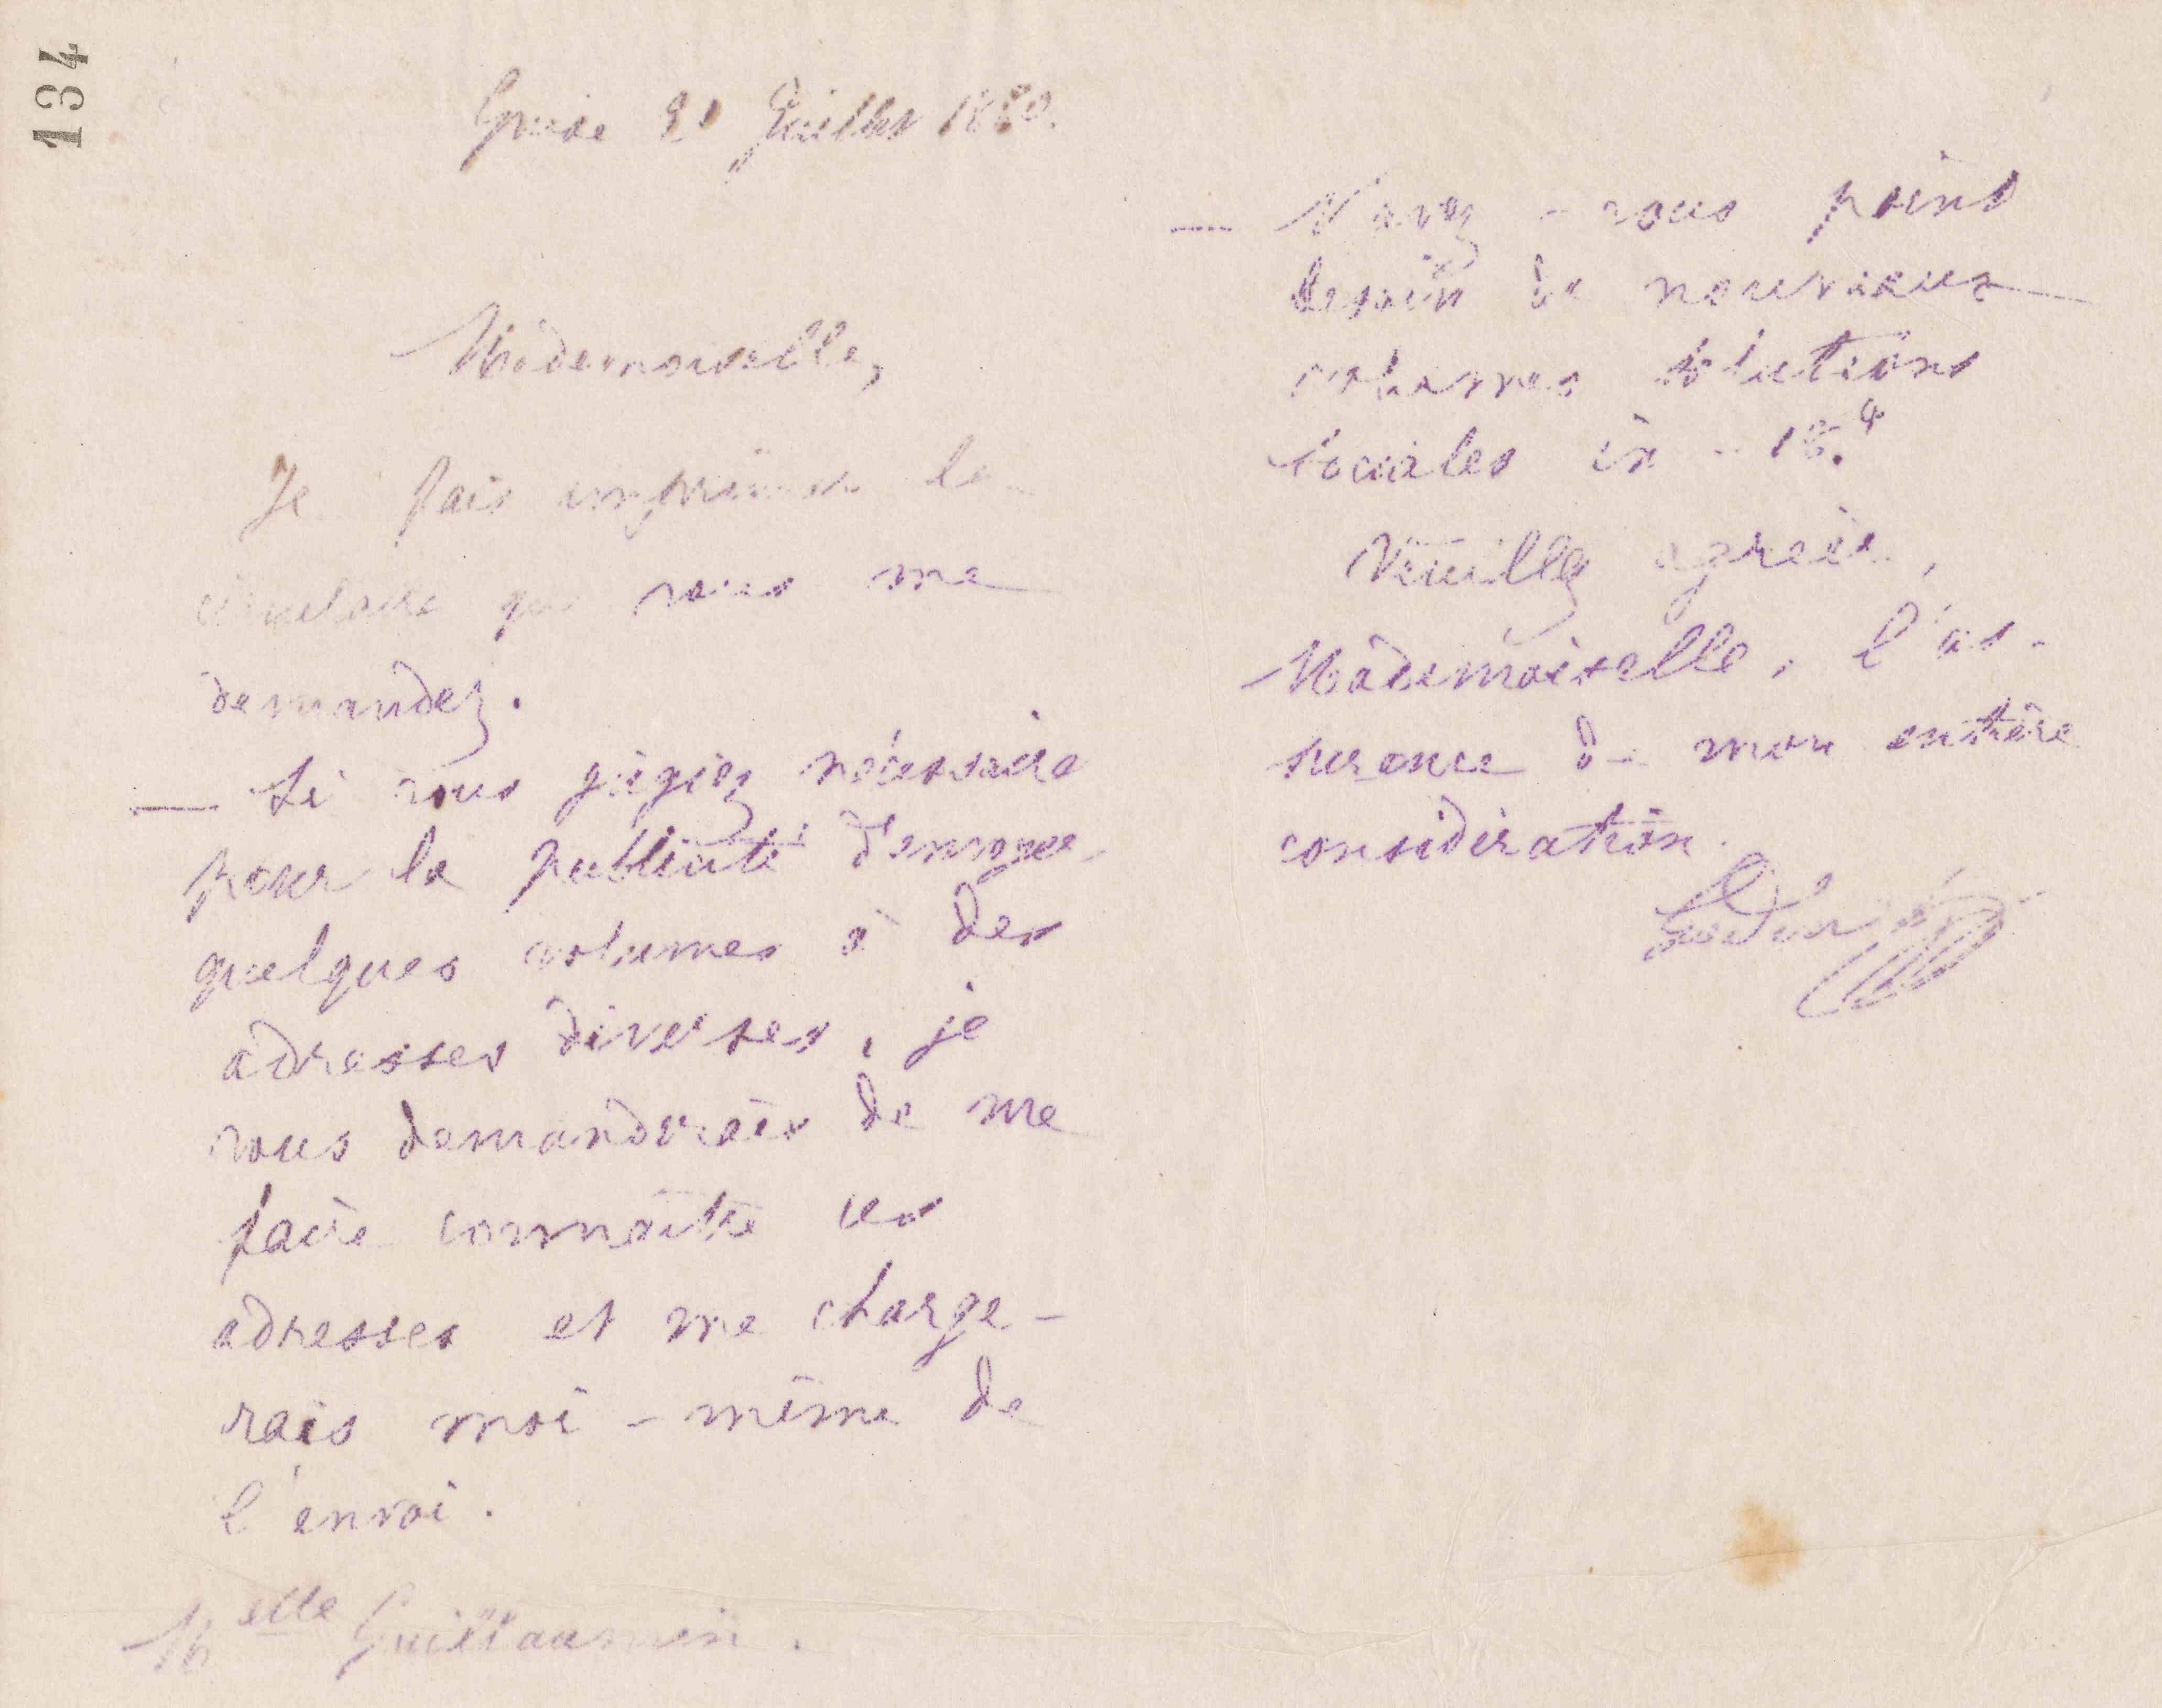 134
Guise 21 Juillet 1880.
Mademoiselle,
Je fais imprimer la
circulaire que vous me
demandez.
— Si vous jugiez nécessaire
pour la publicité d'envoyer
quelques volumes à des
adresses diverses, je
vous demanderais de me
faire connaître ces
adresses et me charge-
rais moi-même de
l'envoi.
Melle Guillaumin.
— N'avez-vous point
besoin de nouveaux
volumes solutions
sociales in-18.
Veuillez agréer,
Mademoiselle, l'as-
surance de mon entière
considération.
Godin